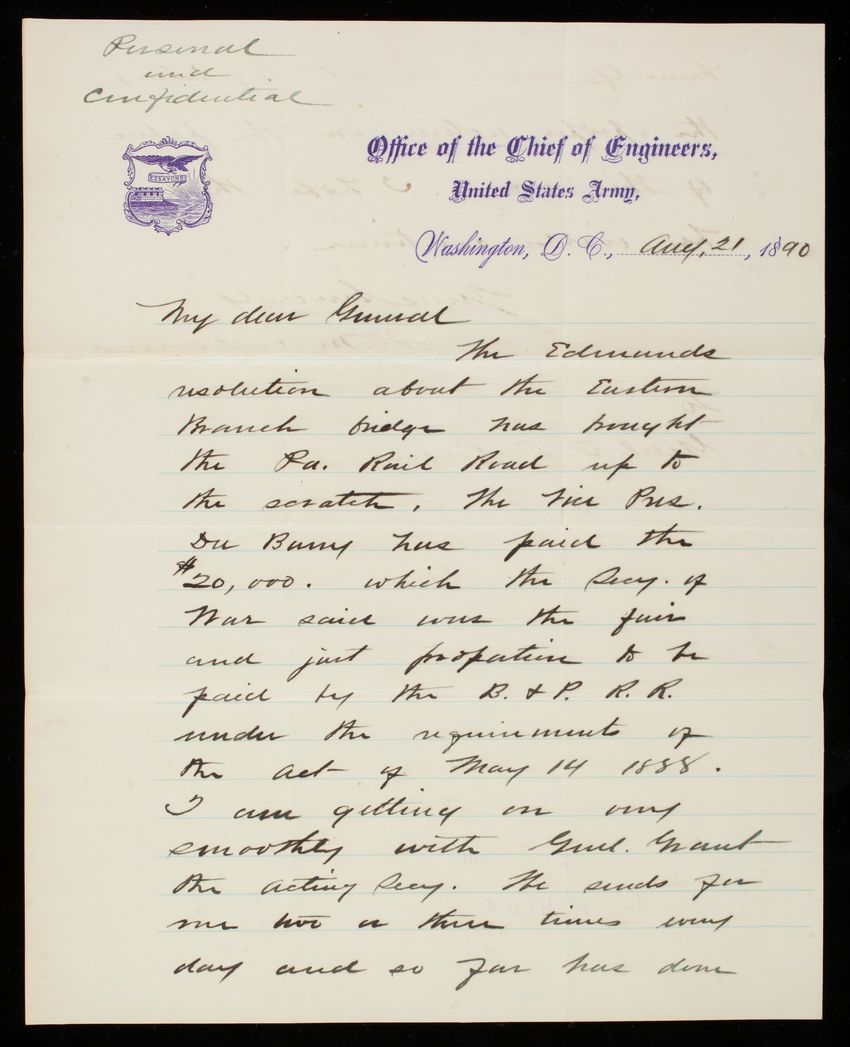 Personal
and
Confidential
ESSAYONS
Office of the Chief of Engineers,
United States Army,
Washington, D. C., Aug. 21, 1890
My dear General
The Edmunds
resolution about the Eastern
Branch bridge has brought
the Pa. Rail Road up to
the scratch. The Vice Pres.
Du Barry has paid the
$20,000. which the Secy. of
War said was the fair
and just proportion to be
paid by the B. & P. R. R.
under the requirements of
the Act of May 14 1888.
I am getting on very
smoothly with Genl. Grant
the acting Secy. He sends for
me two or three times every
day and so far has done